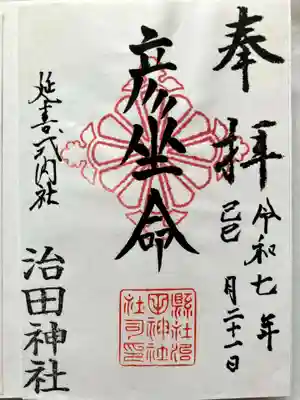 奉拝
令和七年
己巳月二十一日
彦坐命
延喜式内社
治田神社
縣社治
田神社
社司印